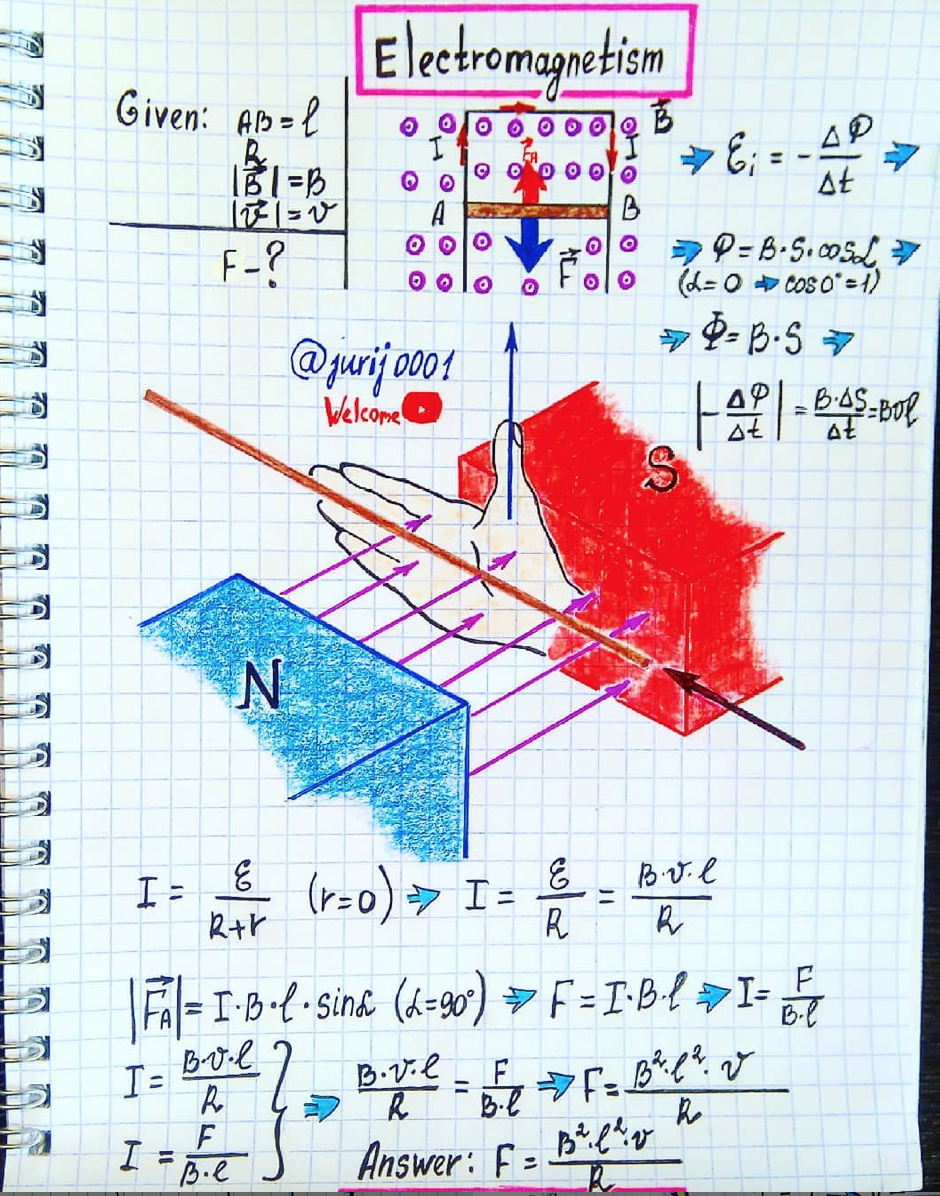 Electromagnetism
Given: AB = l
R
|B⃗| = B
|v⃗| = v
F - ?
B⃗
I I
F⃗A
A B
F⃗
⇒ Ɛi = - ΔΦ/Δt ⇒
⇒ Φ = B·S·cosα ⇒
(α = 0 ⇒ cos0° = 1)
⇒ Φ = B·S ⇒
|- ΔΦ/Δt| = B·ΔS/Δt = Bvl
@jurij0001
Welcome
S
N
I = Ɛ/(R+r) (r=0) ⇒ I = Ɛ/R = B·v·l/R
|F⃗A| = I·B·l·sinα (α=90°) ⇒ F = I·B·l ⇒ I = F/(B·l)
I = B·v·l/R
I = F/(B·l)
} ⇒ B·v·l/R = F/(B·l) ⇒ F = B²·l²·v/R
Answer: F = B²·l²·v/R